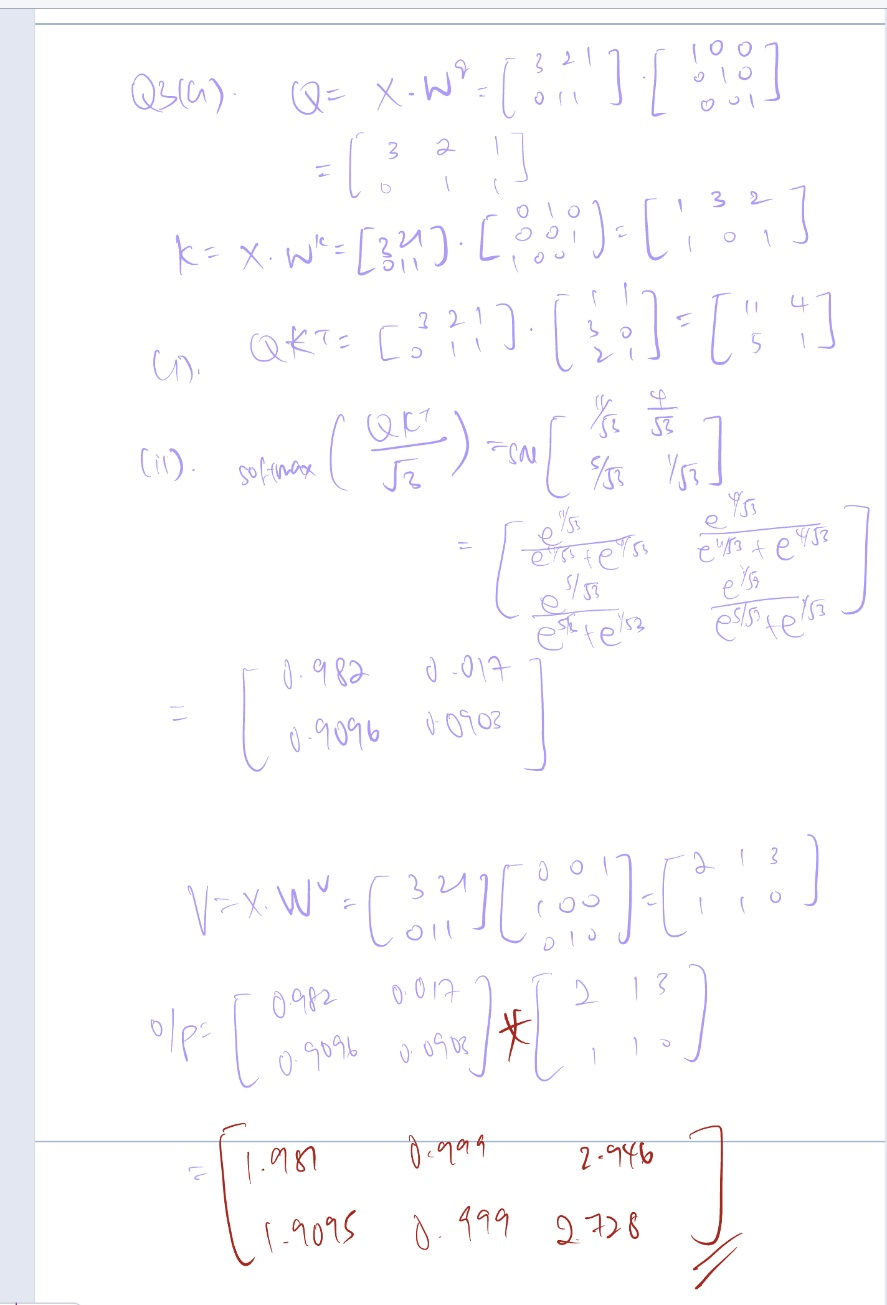 Q3(a). Q = X.W^q = [3 2 1; 0 1 1] . [1 0 0; 0 1 0; 0 0 1]
= [3 2 1; 0 1 1]
K = X.W^k = [3 2 1; 0 1 1] . [0 1 0; 0 0 1; 1 0 0] = [1 3 2; 1 0 1]
(i). QK^T = [3 2 1; 0 1 1] . [1 1; 3 0; 2 1] = [11 4; 5 1]
(ii). softmax (QK^T/√3) = SM [11/√3 4/√3; 5/√3 1/√3]
= [e^11/√3 / e^11/√3 + e^4/√3 e^4/√3 / e^11/√3 + e^4/√3; e^5/√3 / e^5/√3 + e^1/√3 e^1/√3 / e^5/√3 + e^1/√3]
= [0.982 0.017; 0.9096 0.0903]
V = X.W^V = [3 2 1; 0 1 1] [0 0 1; 1 0 0; 0 1 0] = [2 1 3; 1 1 0]
o/p = [0.982 0.017; 0.9096 0.0903] * [2 1 3; 1 1 0]
= [1.981 0.999 2.946; 1.9095 0.999 2.728]